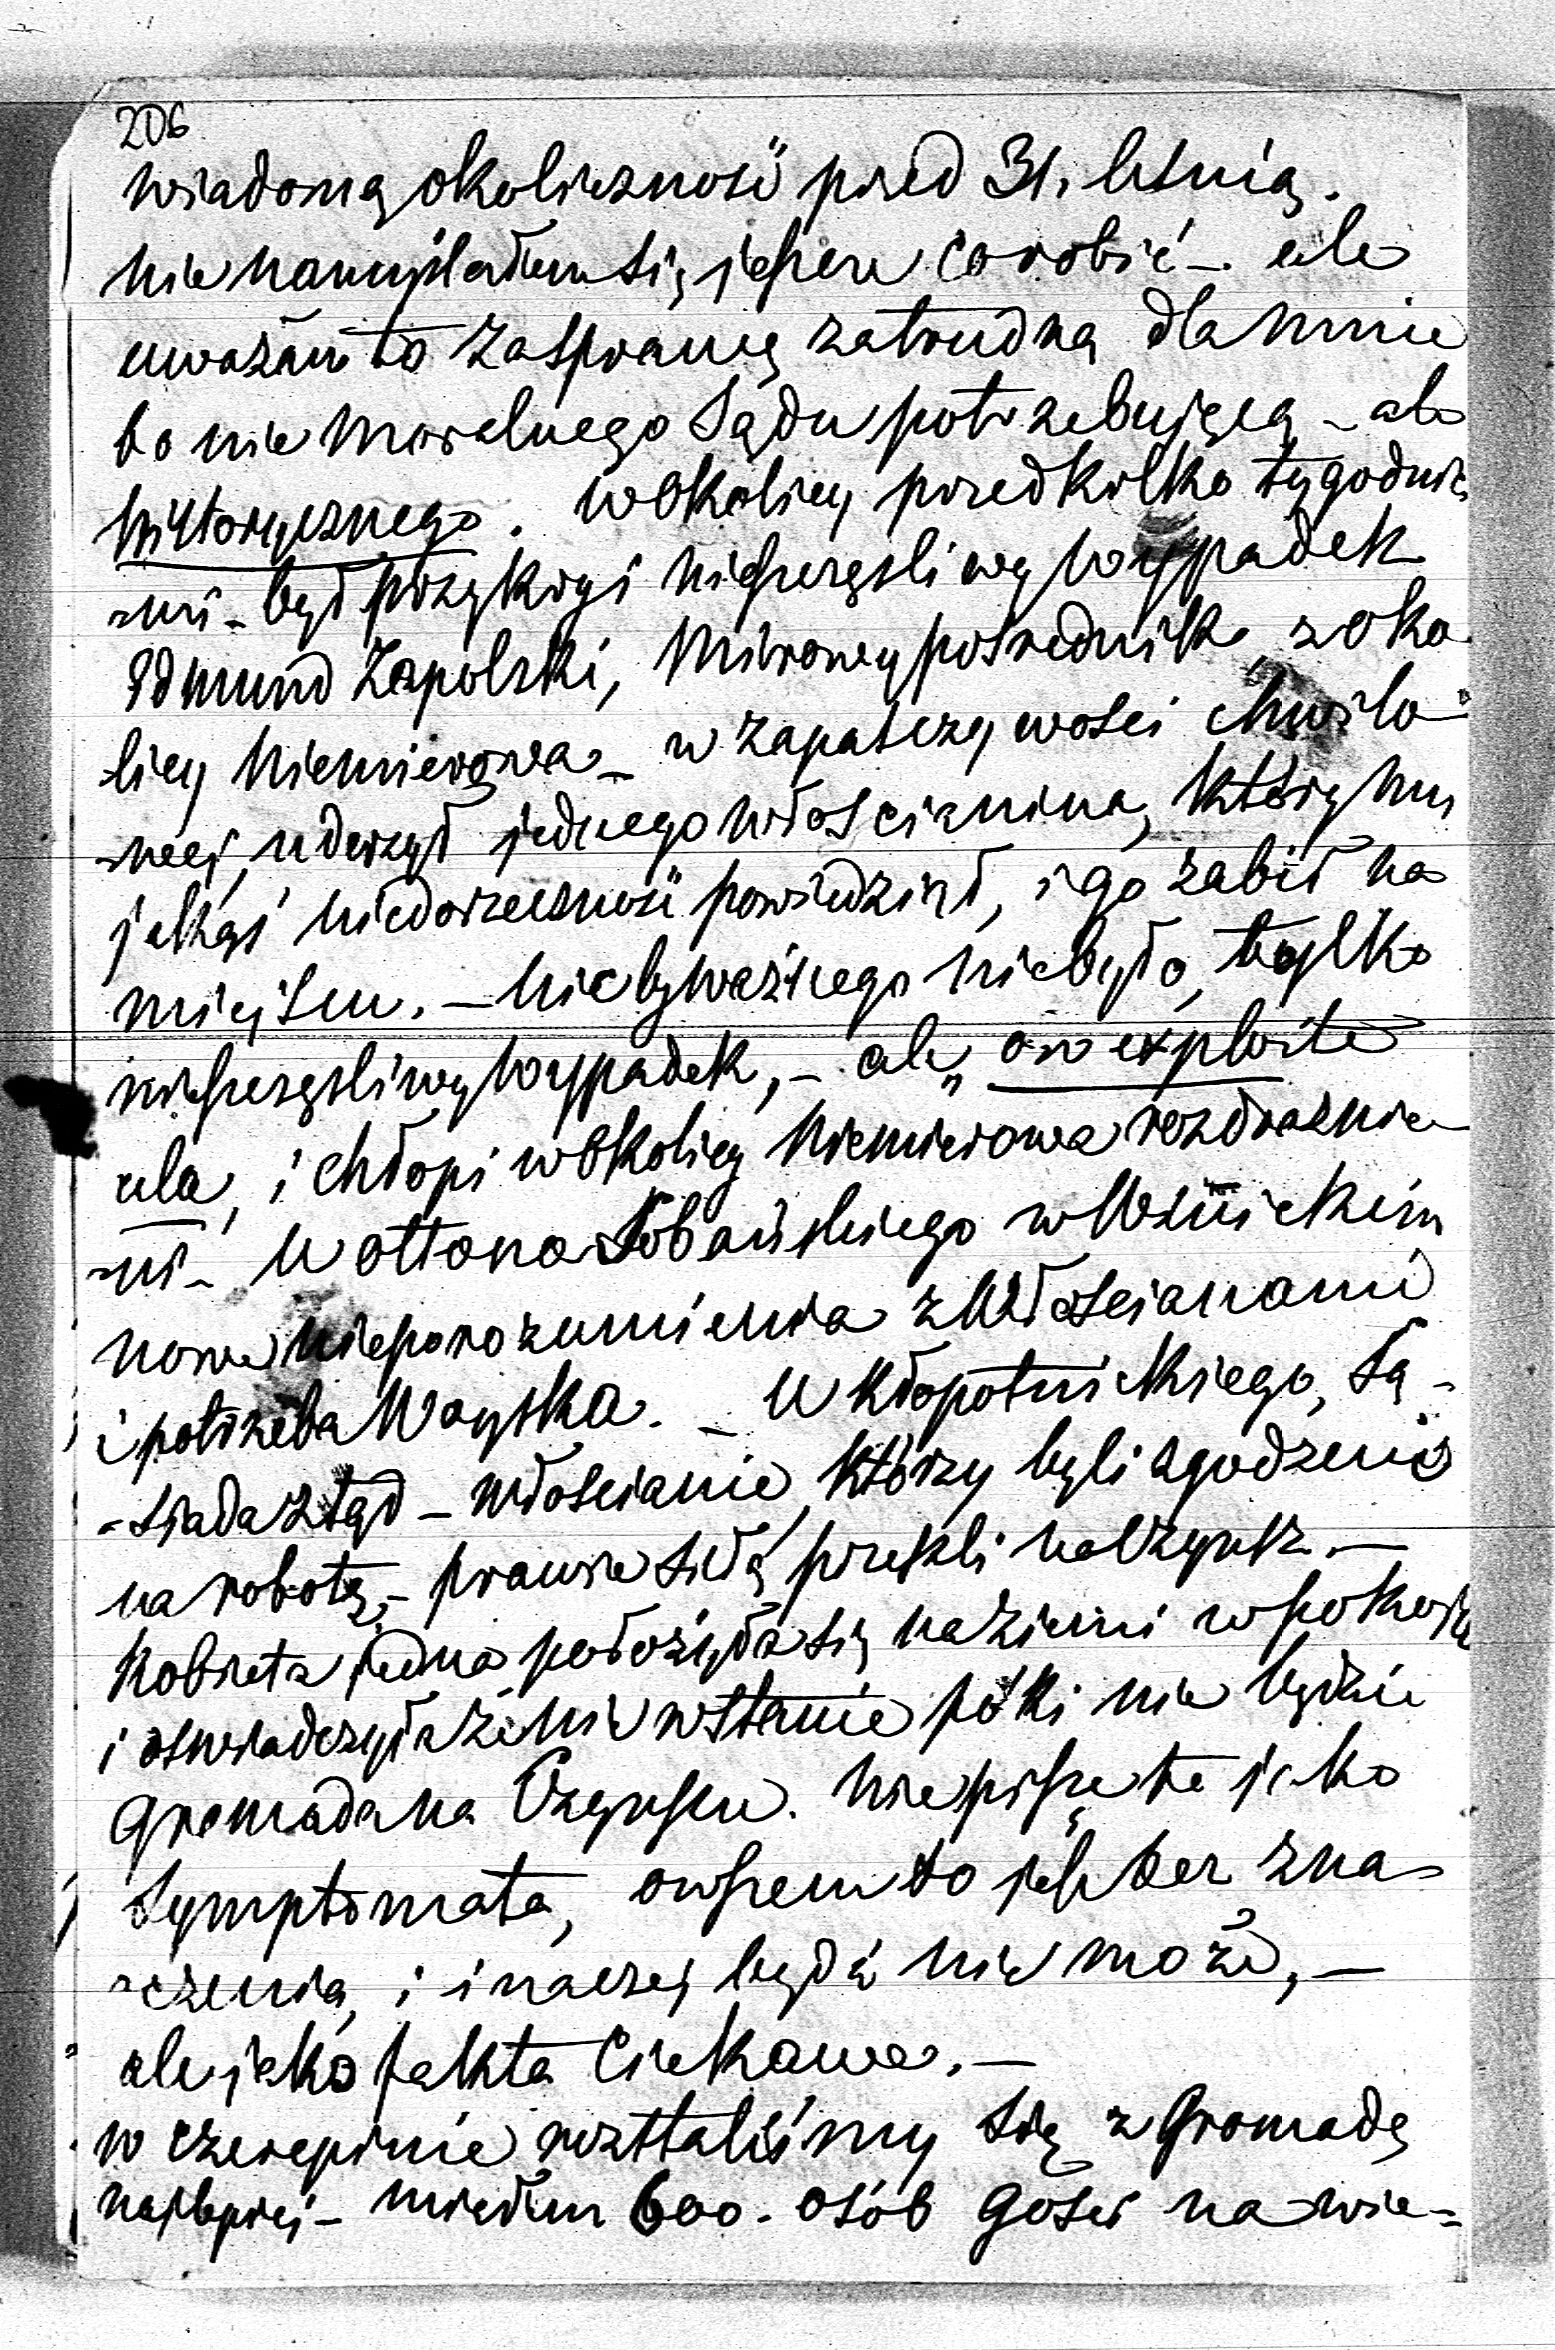 206
wiadomą okoliczność przed 31. letnią.
nie namyślałem się jeszcze co robić – ale
uważam to za sprawę zatrudną dla mnie
bo nie moralnego Sądu potrzebującą – ale
historycznego. w okolicy przed kilko tygodnia
-mi – był przykry i nieszczęśliwy wypadek
Edmund Zapolski, Mirowy pośrednik, z oko
licy Niemierowa – w zapalczywości chwilo-
-wej, uderzył jednego włościanina, który mu
jakąś niedorzeczność powiedział, i go zabił na
miejscu. – nic tyważnego nie było, tylko
nieszczęśliwy wypadek, – ale „on exploite
cela, i chłopi w okolicy Niemierowa rozdrażnie
-ni – U Ottona Sobańskiego w Woźnickim
nowe nieporozumienia z Włościanami
i potrzeba Woyska. – U Kłopotnickiego, Są-
-siada ztąd – włościanie, którzy byli zgodzeni
na robotę, – prawie siłą przeszli na Czynsz. –
Kobieta jedna położyła się na ziemi w pokoju
i oświadczyła że nie wstanie póki nie będzie
Gromada na Czynszu. Nie piszę te jako
Symptomata, owszem to jest bez zna-
-czenia, i inaczej bydź nie może, –
ale jako fakta Ciekawe. –
w Czerepinie rozstaliśmy się z Gromadą
najlepiej – miałem 600. osób Gości na wie-